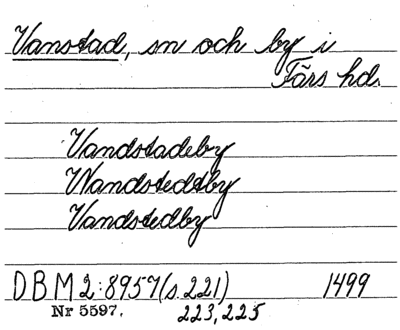 Vanstad, sn och by i
Färs hd.
Vandstadeby
Wandstedtby
Vandstedby
DBM 2:8957 (s. 221) 1499
Nr 5597. 223, 225